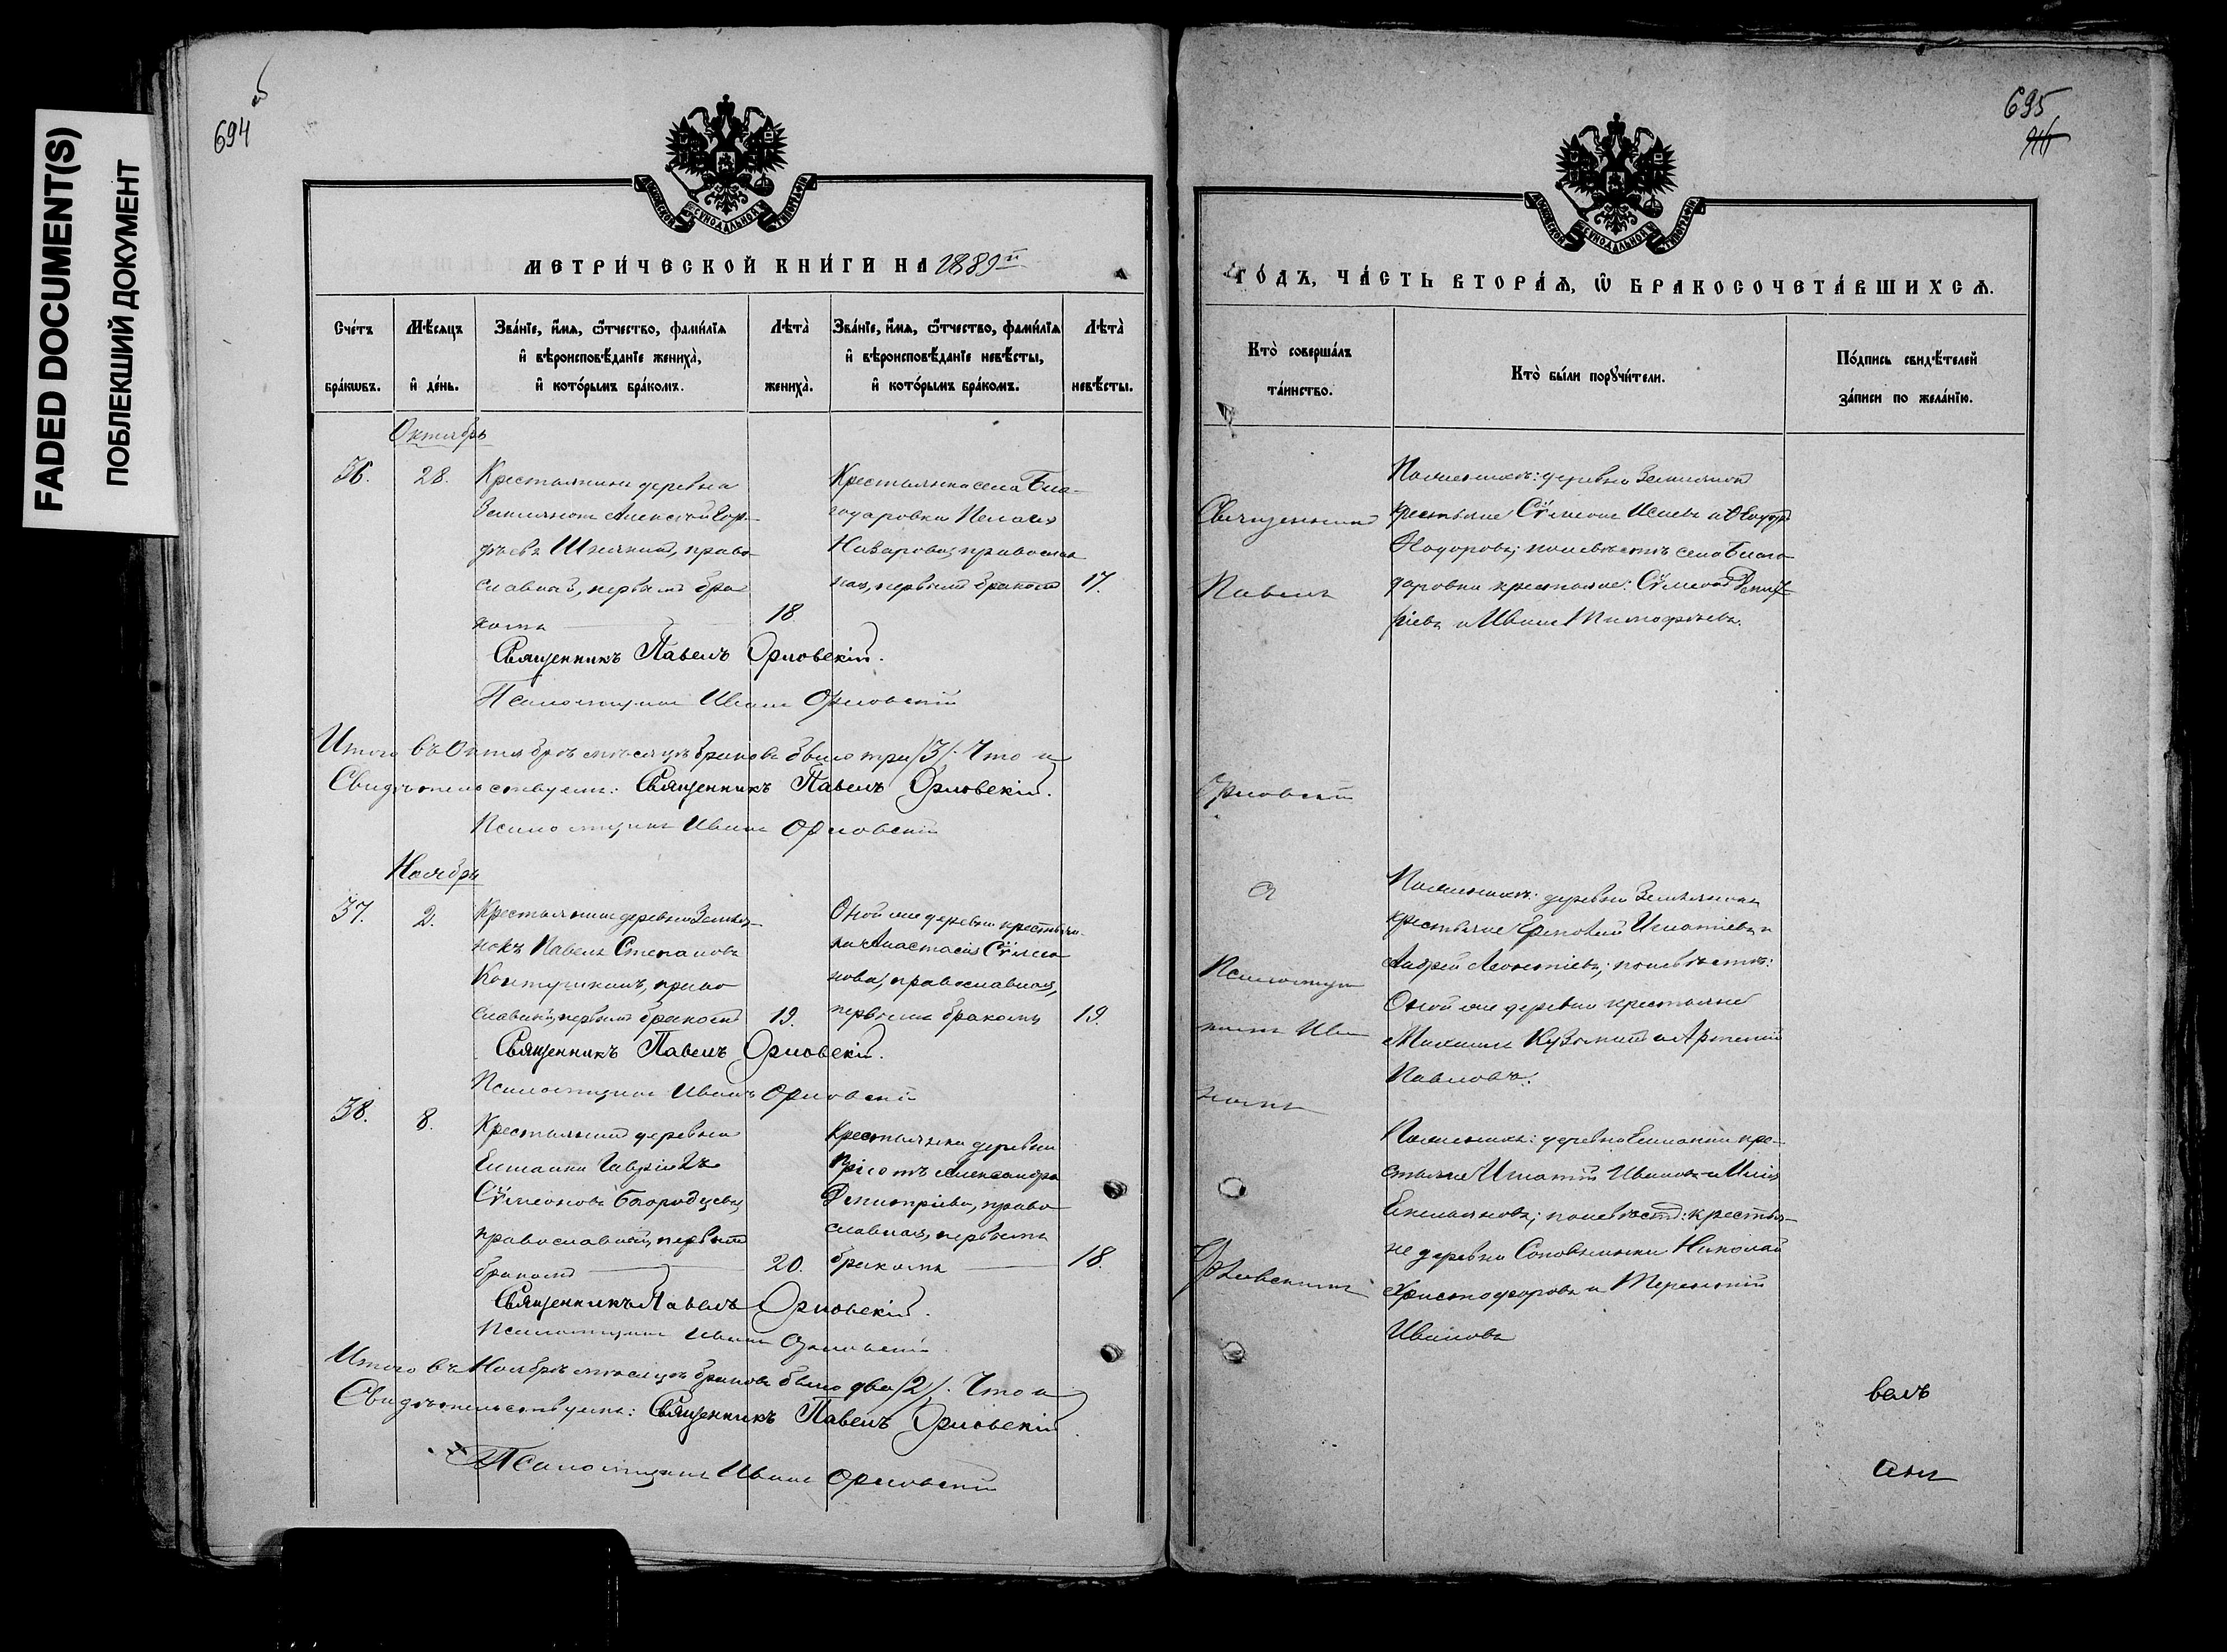 FADED DOCUMENT(S)
ПОБЛЕКШИЙ ДОКУМЕНТ
694
МЕТРИ́ЧЕСКОЙ КНИ́ГИ НА 1889й
Сче́тъ бра́кωвъ.
Мѣ́сяцъ и҆ де́нь.
Зва́нїе, и҆́мѧ, ѻ҆́тчество, фами́лїѧ
и҆ вѣроисповѣ́данїе жениха̀,
и҆ кото́рымъ бра́комъ.
Лѣта̀ жениха̀.
Зва́нїе, и҆́мѧ, ѻ҆́тчество, фами́лїѧ
и҆ вѣроисповѣ́данїе невѣ́сты,
и҆ кото́рымъ бра́комъ.
Лѣта̀ невѣ́сты.
Октябрь
36.
28.
Крестьянинъ деревни
Землянокъ Алексѣй
православный, первымъ бра
комъ
18
Крестьянка села Бла-
годаровки Пелагія
Назарова, православ
ная, первымъ бракомъ
17.
Священникъ Павелъ Орловскій.
Псаломщикъ Иванъ Орловскій
Итого въ Октябрѣ мѣсяцѣ браковъ было три /3/. Что и
Свидѣтельствуемъ: Священникъ Павелъ Орловскій.
Псаломщикъ Иванъ Орловскій
Ноябрь
37.
2.
Крестьянинъ деревни Земля-
нокъ Павелъ Степановъ
право
славный, первымъ бракомъ
19.
Оной же деревни крестьян
ка Анастасія Сѵмео
нова, православная,
первымъ бракомъ
19.
Священникъ Павелъ Орловскій.
Псаломщикъ Иванъ Орловскій
38.
8.
Крестьянинъ деревни
Елшанки Гавріилъ
Сѵмеоновъ Бородцевъ,
православный, первымъ
бракомъ
20.
Крестьянка деревни
Александра
Димитріева, право
славная, первымъ
бракомъ
18.
Священникъ Павелъ Орловскій.
Псаломщикъ Иванъ Орловскій
Итого въ Ноябрѣ мѣсяцѣ браковъ было два /2/. Что и
Свидѣтельствуемъ: Священникъ Павелъ Орловскій
Псаломщикъ Иванъ Орловскій
695
ГО́ДЪ, ЧА́СТЬ ВТОРА́Ѧ, Ѡ҆ БРАКОСОЧЕТА́ВШИХСѦ.
Кто̀ соверша́лъ
та́инство.
Кто̀ бы́ли порꙋчи́тели.
По́дпись свидѣ́телей
за́писи по жела́нїю.
Священникъ
Павелъ
Орловскій
съ
Псаломщи
комъ Ива
номъ
Орловскимъ
По женихѣ: деревни Землянокъ
крестьяне Сѵмеонъ Исаевъ и Ѳеодоръ
Ѳедоровъ; по невѣстѣ села Благо
даровки крестьяне: Сѵмеонъ Димит-
ріевъ и Иванъ Тимофѣевъ.
По женихѣ: деревни Землянокъ
крестьяне Ермолай Игнатіевъ и
Андрей Леонтіевъ; по невѣстѣ:
Оной же деревни крестьяне
Михаилъ Кузьминъ и Артемій
Павловъ.
По женихѣ: деревни Елшанки кре-
стьяне Игнатій Ивановъ и Илія
Емельяновъ; по невѣстѣ: крестья-
не деревни Соповъ Николай
Христофоровъ и Терентій
Ивановъ
велъ
ани